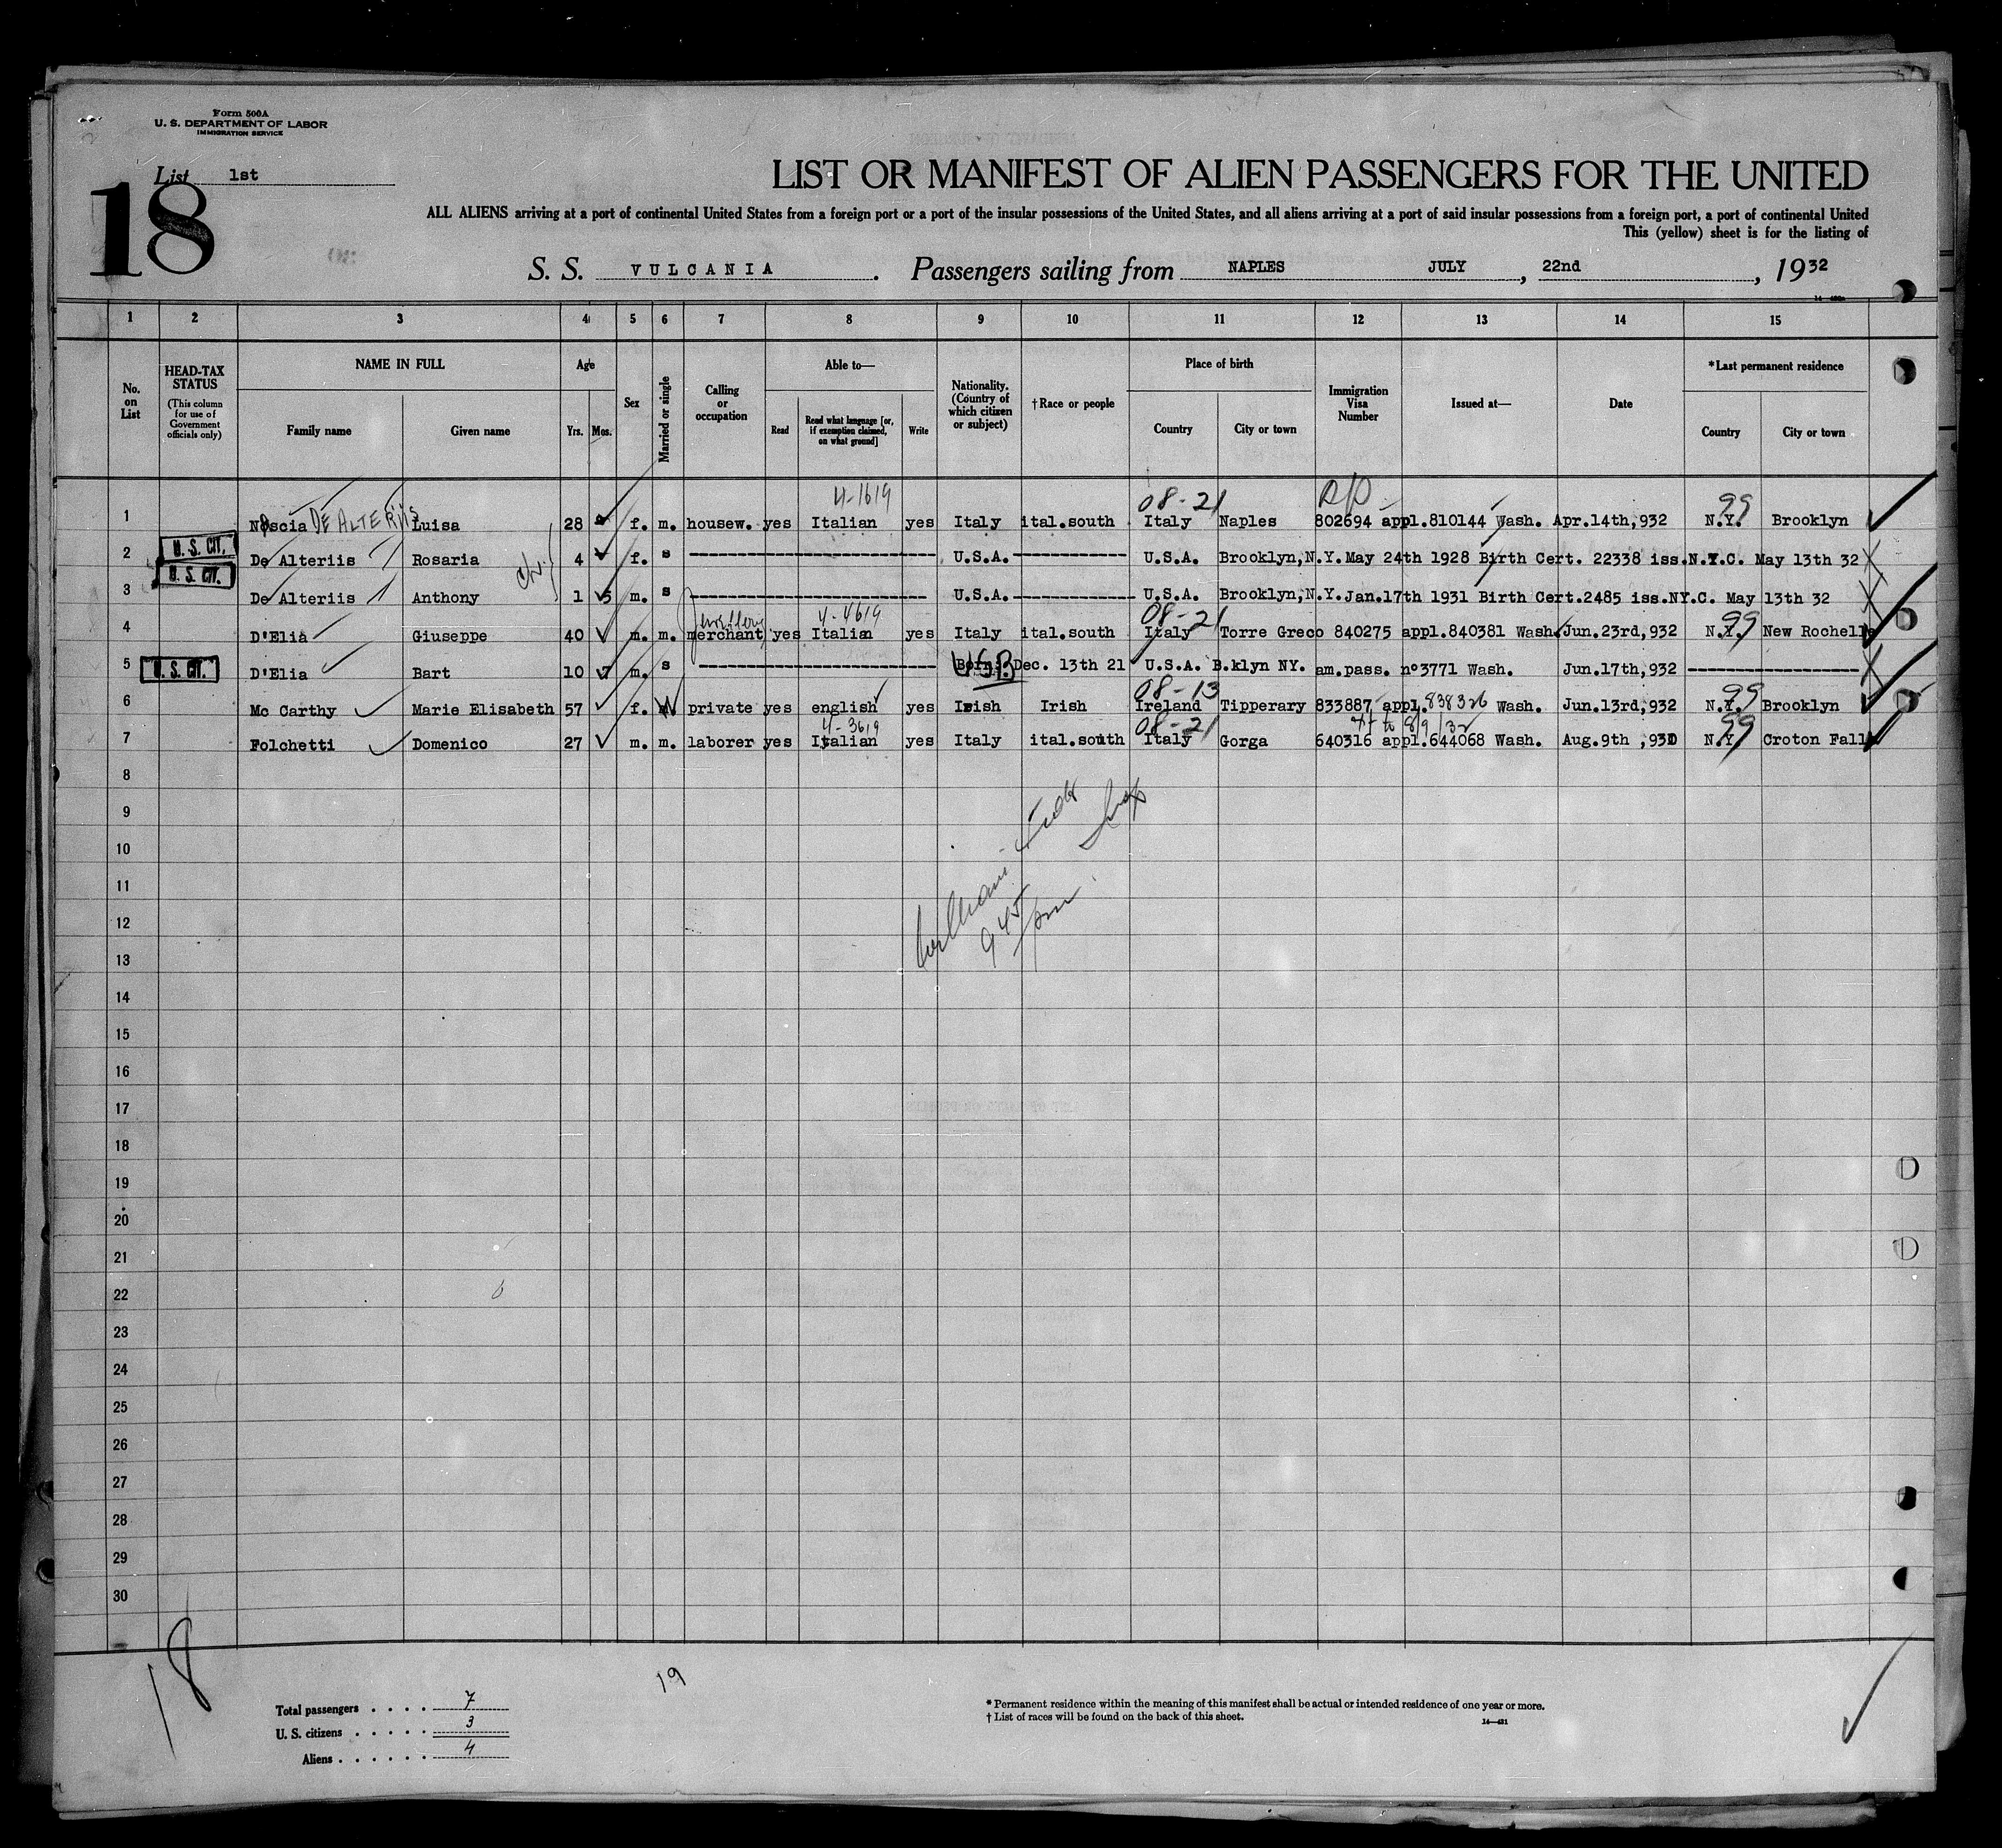 Form 500A
U. S. DEPARTMENT OF LABOR
IMMIGRATION SERVICE
List 1st
18
LIST OR MANIFEST OF ALIEN PASSENGERS FOR THE UNITED
ALL ALIENS arriving at a port of continental United States from a foreign port or a port of the insular possessions of the United States, and all aliens arriving at a port of said insular possessions from a foreign port, a port of continental United
This (yellow) sheet is for the listing of
S. S. VULCANIA. Passengers sailing from NAPLES JULY, 22nd, 1932
1 2 3 4 5 6 7 8 9 10 11 12 13 14 15
No. on List
HEAD-TAX STATUS
(This column for use of Government officials only)
NAME IN FULL
Family name Given name
Age
Yrs. Mos.
Sex
Married or single
Calling or occupation
Able to—
Read Read what language [or, if exemption claimed, on what ground] Write
Nationality. (Country of which citizen or subject)
†Race or people
Place of birth
Country City or town
Immigration Visa Number
Issued at—
Date
*Last permanent residence
Country City or town
4-1619 08-21 99
1 Noscia DE ALTERIIS Luisa 28 f. m. housew. yes Italian yes Italy ital.south Italy Naples 802694 appl.810144 Wash. Apr.14th,932 N.Y. Brooklyn
2 U. S. CIT. De Alteriis Rosaria 4 f. s U.S.A. U.S.A. Brooklyn,N.Y. May 24th 1928 Birth Cert. 22338 iss.N.Y.C. May 13th 32
3 U. S. CIT. De Alteriis Anthony 1 5 m. s U.S.A. U.S.A. Brooklyn,N.Y. Jan.17th 1931 Birth Cert.2485 iss.NY.C. May 13th 32
Jewellery 4-4619 08-21 99
4 D'Elia Giuseppe 40 m. m. merchant yes Italian yes Italy ital.south Italy Torre Greco 840275 appl.840381 Wash. Jun.23rd,932 N.Y. New Rochelle
5 U. S. CIT. D'Elia Bart 10 7 m. s Born: Dec. 13th 21 U.S.A. B.klyn NY. am.pass. n°3771 Wash. Jun.17th,932
08-13 99
6 Mc Carthy Marie Elisabeth 57 f. W private yes english yes Irish Irish Ireland Tipperary 833887 appl.838326 Wash. Jun.13rd,932 N.Y. Brooklyn
4-3619 08-21 to 8/9/32 99
7 Folchetti Domenico 27 m. m. laborer yes Italian yes Italy ital.south Italy Gorga 640316 appl.644068 Wash. Aug.9th ,931 N.Y. Croton Falls
8
9
10
11
12
13
14
15
16
17
18
19
20
21
22
23
24
25
26
27
28
29
30
945 pm
18
19
Total passengers . . . . 7
U. S. citizens . . . . . 3
Aliens . . . . . . 4
* Permanent residence within the meaning of this manifest shall be actual or intended residence of one year or more.
† List of races will be found on the back of this sheet.
14—431